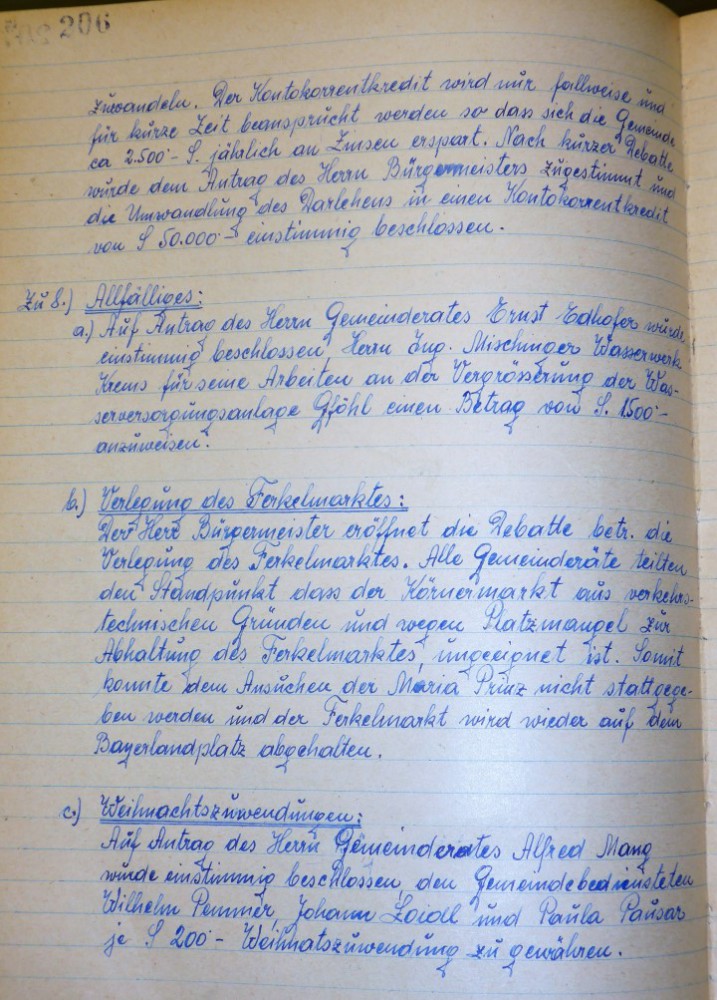 206
zuwandeln. Der Kontokorrentkredit wird nur fallweise und
für kurze Zeit beansprucht werden so dass sich die Gemeinde
ca 2.500·- S. jährlich an Zinsen erspart. Nach kurzer Debatte
wurde dem Antrag des Herrn Bürgermeisters zugestimmt und
die Umwandlung des Darlehens in einen Kontokorrentkredit
von S 50.000·- einstimmig beschlossen.
Zu 8.) Allfälliges:
a.) Auf Antrag des Herrn Gemeinderates Ernst Edhofer wurde
einstimmig beschlossen, Herrn Ing. Mischinger Wasserwerk
Krems für seine Arbeiten an der Vergrösserung der Was-
serversorgungsanlage Gföhl einen Betrag von S. 1500·-
anzuweisen.
b.) Verlegung des Ferkelmarktes:
Der Herr Bürgermeister eröffnet die Debatte betr. die
Verlegung des Ferkelmarktes. Alle Gemeinderäte teilten
den Standpunkt dass der Körnermarkt aus verkehrs-
technischen Gründen und wegen Platzmangel zur
Abhaltung des Ferkelmarktes, ungeeignet ist. Somit
konnte dem Ansuchen der Maria Prinz nicht stattgege-
ben werden und der Ferkelmarkt wird wieder auf dem
Bayerlandplatz abgehalten.
c.) Weihnachtszuwendungen:
Auf Antrag des Herrn Gemeinderates Alfred Mang
wurde einstimmig beschlossen, den Gemeindebediensteten
Wilhelm Pemmer, Johann Loidl und Paula Pausar
je S 200·- Weihnatszuwendung zu gewähren.